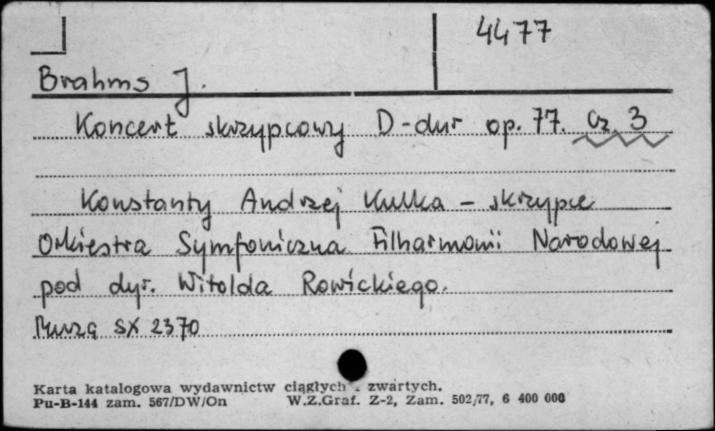 4477
Brahms J.
Koncert skrzypcowy D-dur op. 77. Cz. 3
Konstanty Andrzej Kulka - skrzypce
Orkiestra Symfoniczna Filharmonii Narodowej
pod dyr. Witolda Rowickiego.
Muza SX 2370
Karta katalogowa wydawnictw ciągłych i zwartych.
Pu-B-144 zam. 567/DW/On W.Z.Graf. Z-2, Zam. 502/77, 6 400 000